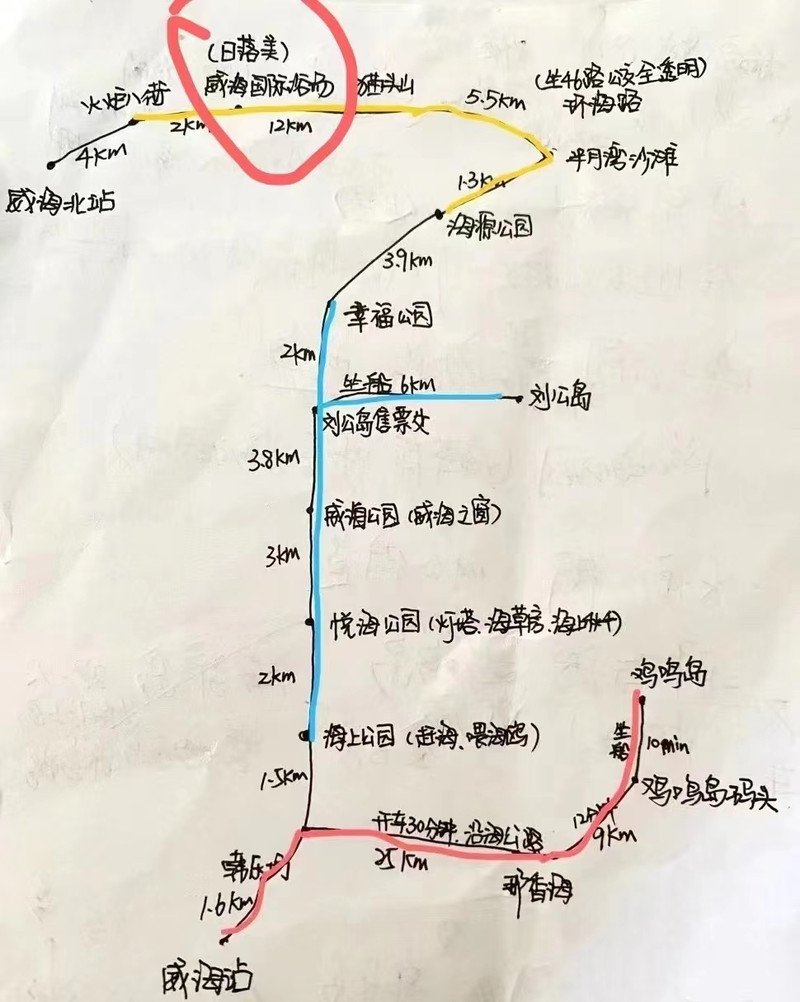 (日落美)
火炬八街 威海国际浴场 猫头山
(坐46路公交全透明)
环海路
5.5km
2km
12km
4km
威海北站
半月湾沙滩
1.3km
海源公园
3.9km
幸福公园
2km
坐船 6km
刘公岛
刘公岛售票处
3.8km
威海公园(威海之窗)
3km
悦海公园(灯塔、海草房、海上列车)
2km
鸡鸣岛
海上公园(赶海、喂海鸥)
坐船
10min
1.5km
鸡鸣岛码头
开车30分钟、沿海公路
25km
9km
韩乐坊
那香海
1.6km
威海站